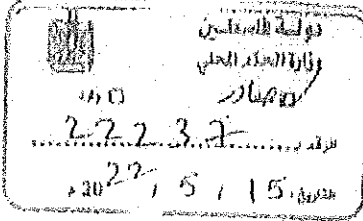 دولة فلسطين
وزارة الحكم المحلي
صادر
الرقم: 22237
التاريخ: 15 / 5 / 2022 م